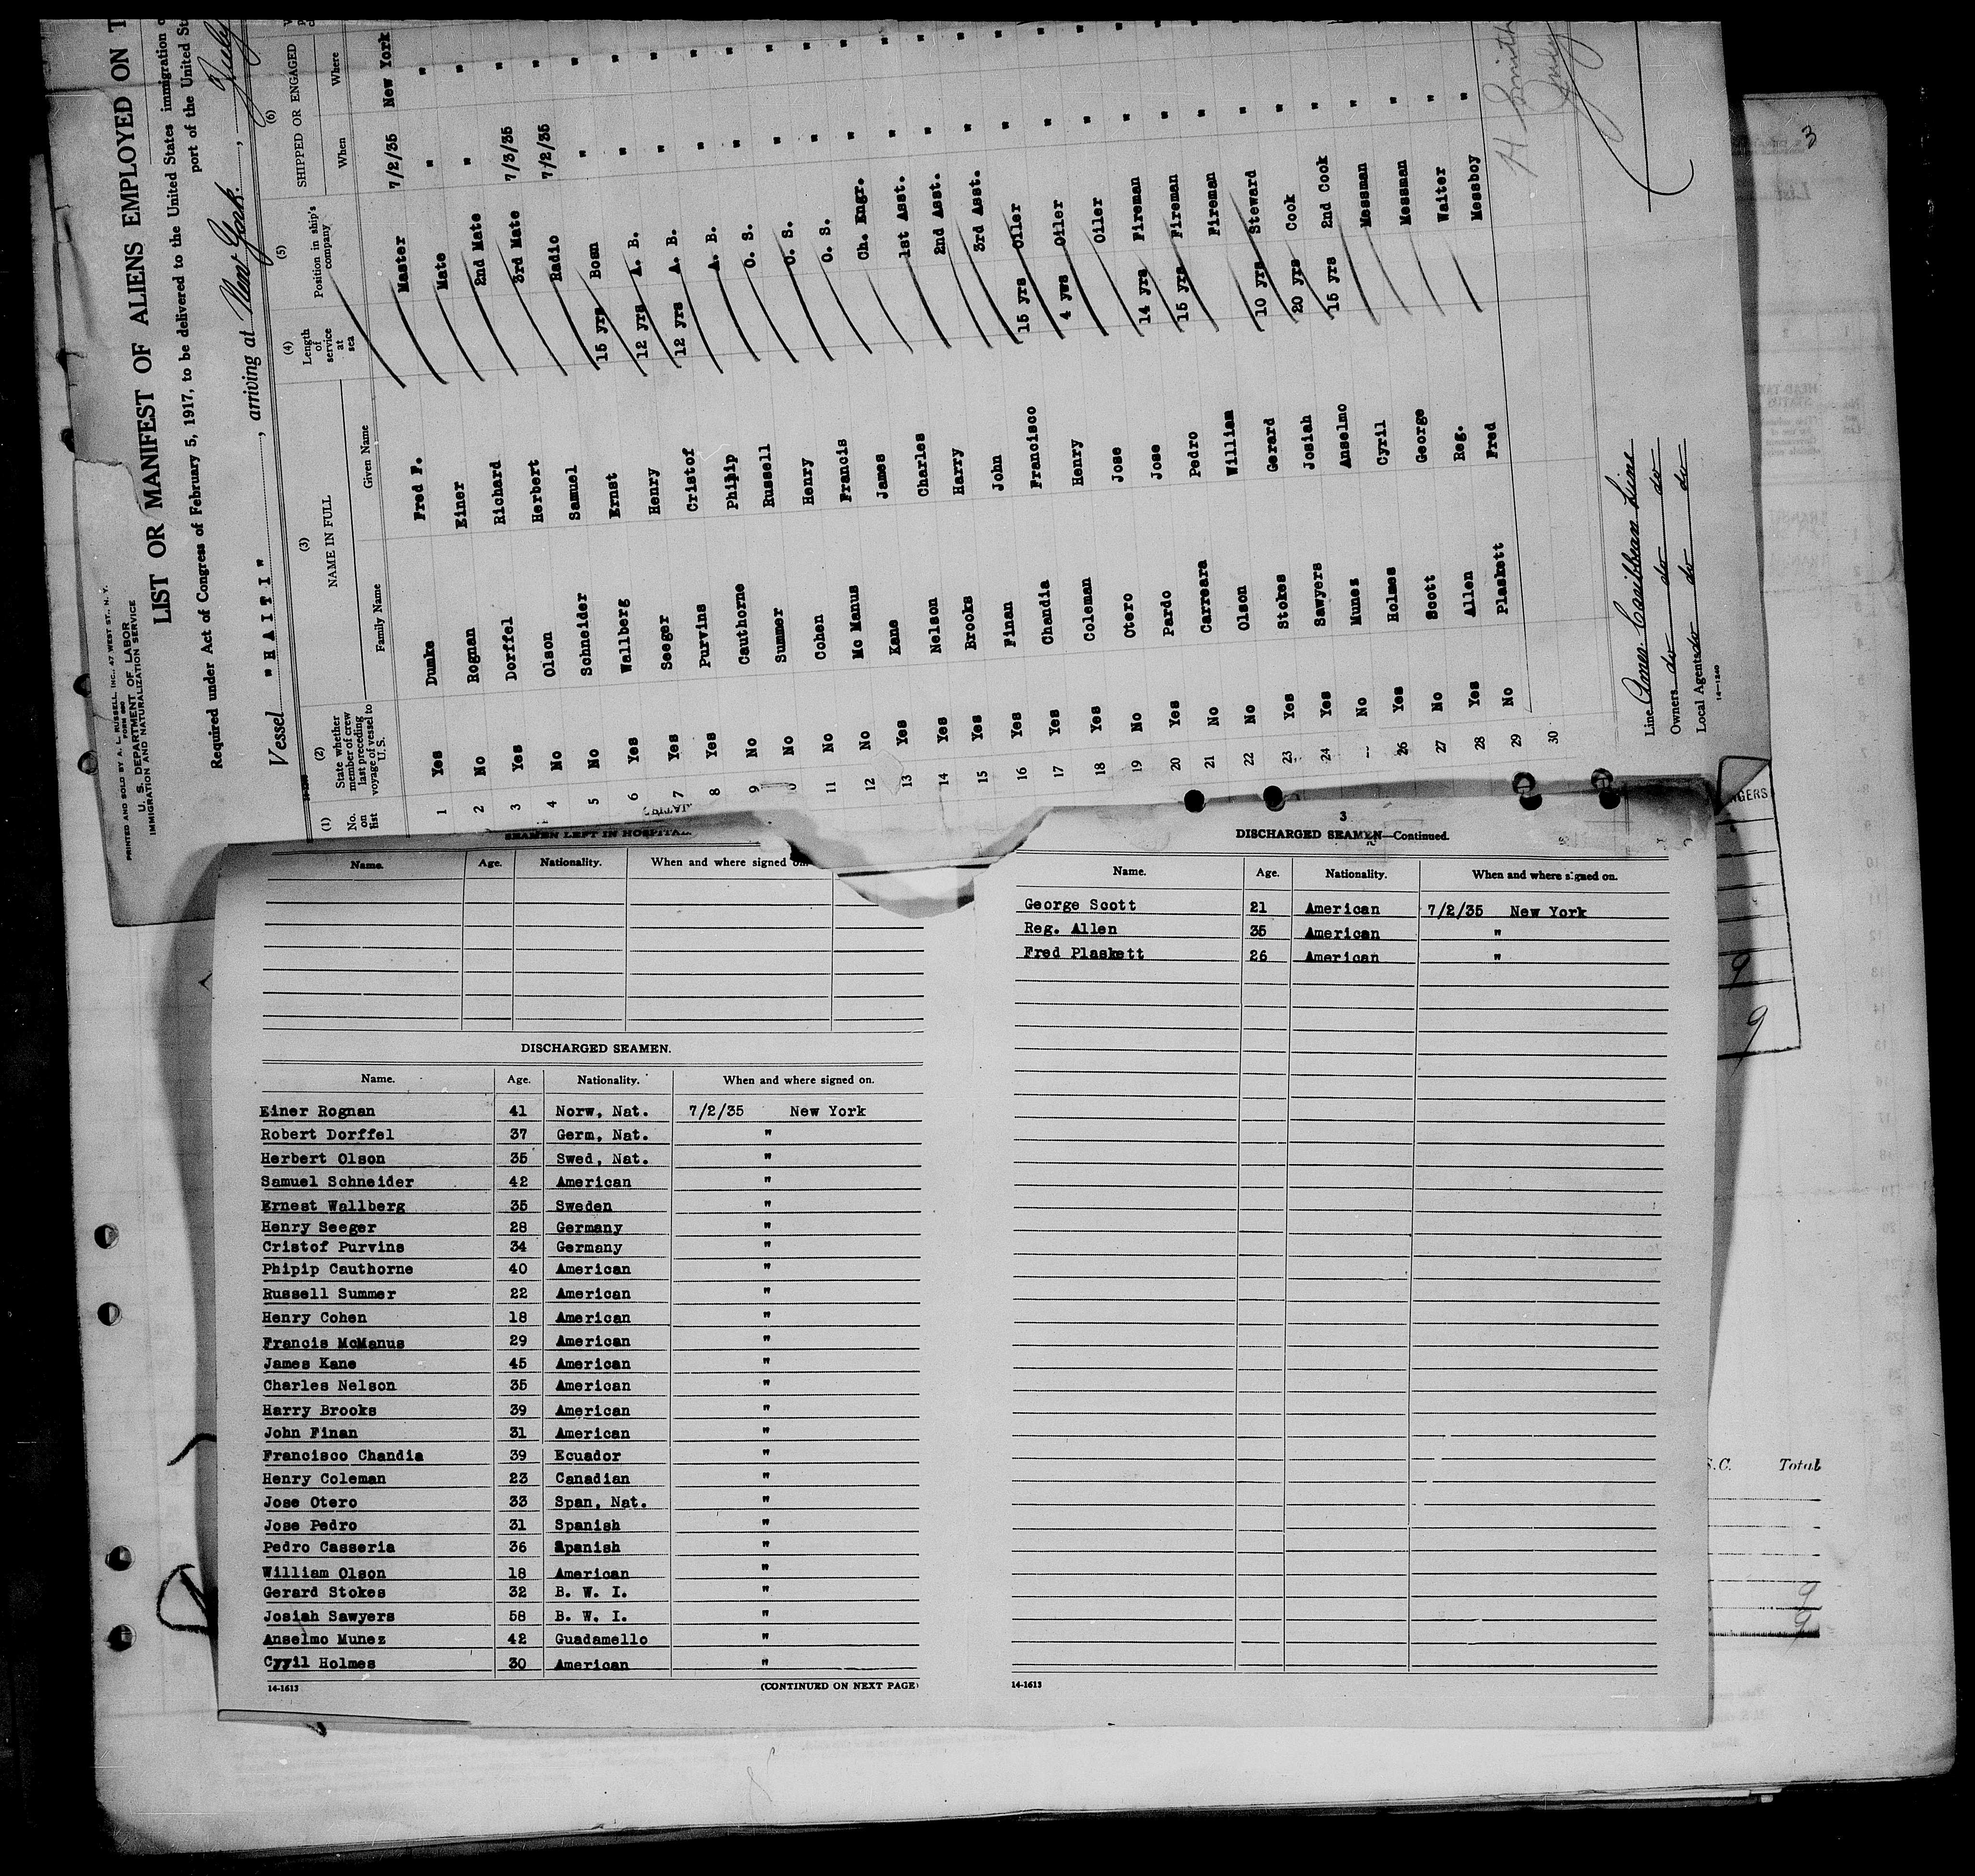 PRINTED AND SOLD BY A. L. RUSSELL, INC., 47 WEST ST., N. Y.
U. S. DEPARTMENT OF LABOR
IMMIGRATION AND NATURALIZATION SERVICE
LIST OR MANIFEST OF ALIENS EMPLOYED ON T
Required under Act of Congress of February 5, 1917, to be delivered to the United States immigration
port of the United St
Vessel "HAITI", arriving at New York, July
(1) (2) (3) (4) (5) (6)
No. on list State whether member of crew last preceding voyage of vessel to U.S. NAME IN FULL Length of service at sea Position in ship's company SHIPPED OR ENGAGED
Family Name Given Name When Where
1 Yes Dumke Fred F. Master 7/2/35 New York
2 No Rognan Einer Mate " "
3 Yes Dorffel Richard 2nd Mate " "
4 No Olson Herbert 3rd Mate 7/3/35 "
5 No Schneider Samuel Radio 7/2/35 "
6 Yes Wallberg Ernst 15 yrs Bosn " "
7 Yes Seeger Henry 12 yrs A. B. " "
8 Yes Purvins Cristof 12 yrs A. B. " "
9 No Cauthorne Phipip A. B. " "
No Summer Russell O. S. " "
11 No Cohen Henry O. S. " "
12 No Mc Manus Francis O. S. " "
13 Yes Kane James Ch. Engr. " "
14 Yes Nelson Charles 1st Asst. " "
15 Yes Brooks Harry 2nd Asst. " "
16 Yes Finan John 3rd Asst. " "
17 Yes Chandia Francisco 15 yrs Oiler " "
18 Yes Coleman Henry 4 yws Oiler " "
19 No Otero Jose Oiler " "
20 Yes Pardo Jose 14 yrs Fireman " "
21 No Carreara Pedro 15 yrs Fireman " "
22 No Olson William Fireman " "
23 Yes Stokes Gerard 10 yrs Steward " "
24 Yes Sawyers Josiah 20 yrs Cook " "
No Munez Anselmo 15 yrs 2nd Cook " "
26 Yes Holmes Cyril Messman " "
27 No Scott George Messman " "
28 Yes Allen Reg. Waiter " "
29 No Plaskett Fred Messboy " "
30
H Smith
Line Amer. Caribbean Line
Owners do do do
Local Agents do do do
14-1240
SEAMEN LEFT IN HOSPITAL
Name. Age. Nationality. When and where signed on.
DISCHARGED SEAMEN.
Name. Age. Nationality. When and where signed on.
Einer Rognan 41 Norw, Nat. 7/2/35 New York
Robert Dorffel 37 Germ, Nat. "
Herbert Olson 35 Swed, Nat. "
Samuel Schneider 42 American "
Ernest Wallberg 35 Sweden "
Henry Seeger 28 Germany "
Cristof Purvins 34 Germany "
Phipip Cauthorne 40 American "
Russell Summer 22 American "
Henry Cohen 18 American "
Francis McManus 29 American "
James Kane 45 American "
Charles Nelson 35 American "
Harry Brooks 39 American "
John Finan 31 American "
Francisco Chandia 39 Ecuador "
Henry Coleman 23 Canadian "
Jose Otero 33 Span, Nat. "
Jose Pedro 31 Spanish "
Pedro Casseria 36 Spanish "
William Olson 18 American "
Gerard Stokes 32 B. W. I. "
Josiah Sawyers 58 B. W. I. "
Anselmo Munez 42 Guadamello "
Cyyil Holmes 30 American "
14-1613 (CONTINUED ON NEXT PAGE)
3
DISCHARGED SEAMEN—Continued.
Name. Age. Nationality. When and where signed on.
George Scott 21 American 7/2/35 New York
Reg. Allen 35 American "
Fred Plaskett 26 American "
14-1613
3
NGERS
9
9
S.C. Total
9
9